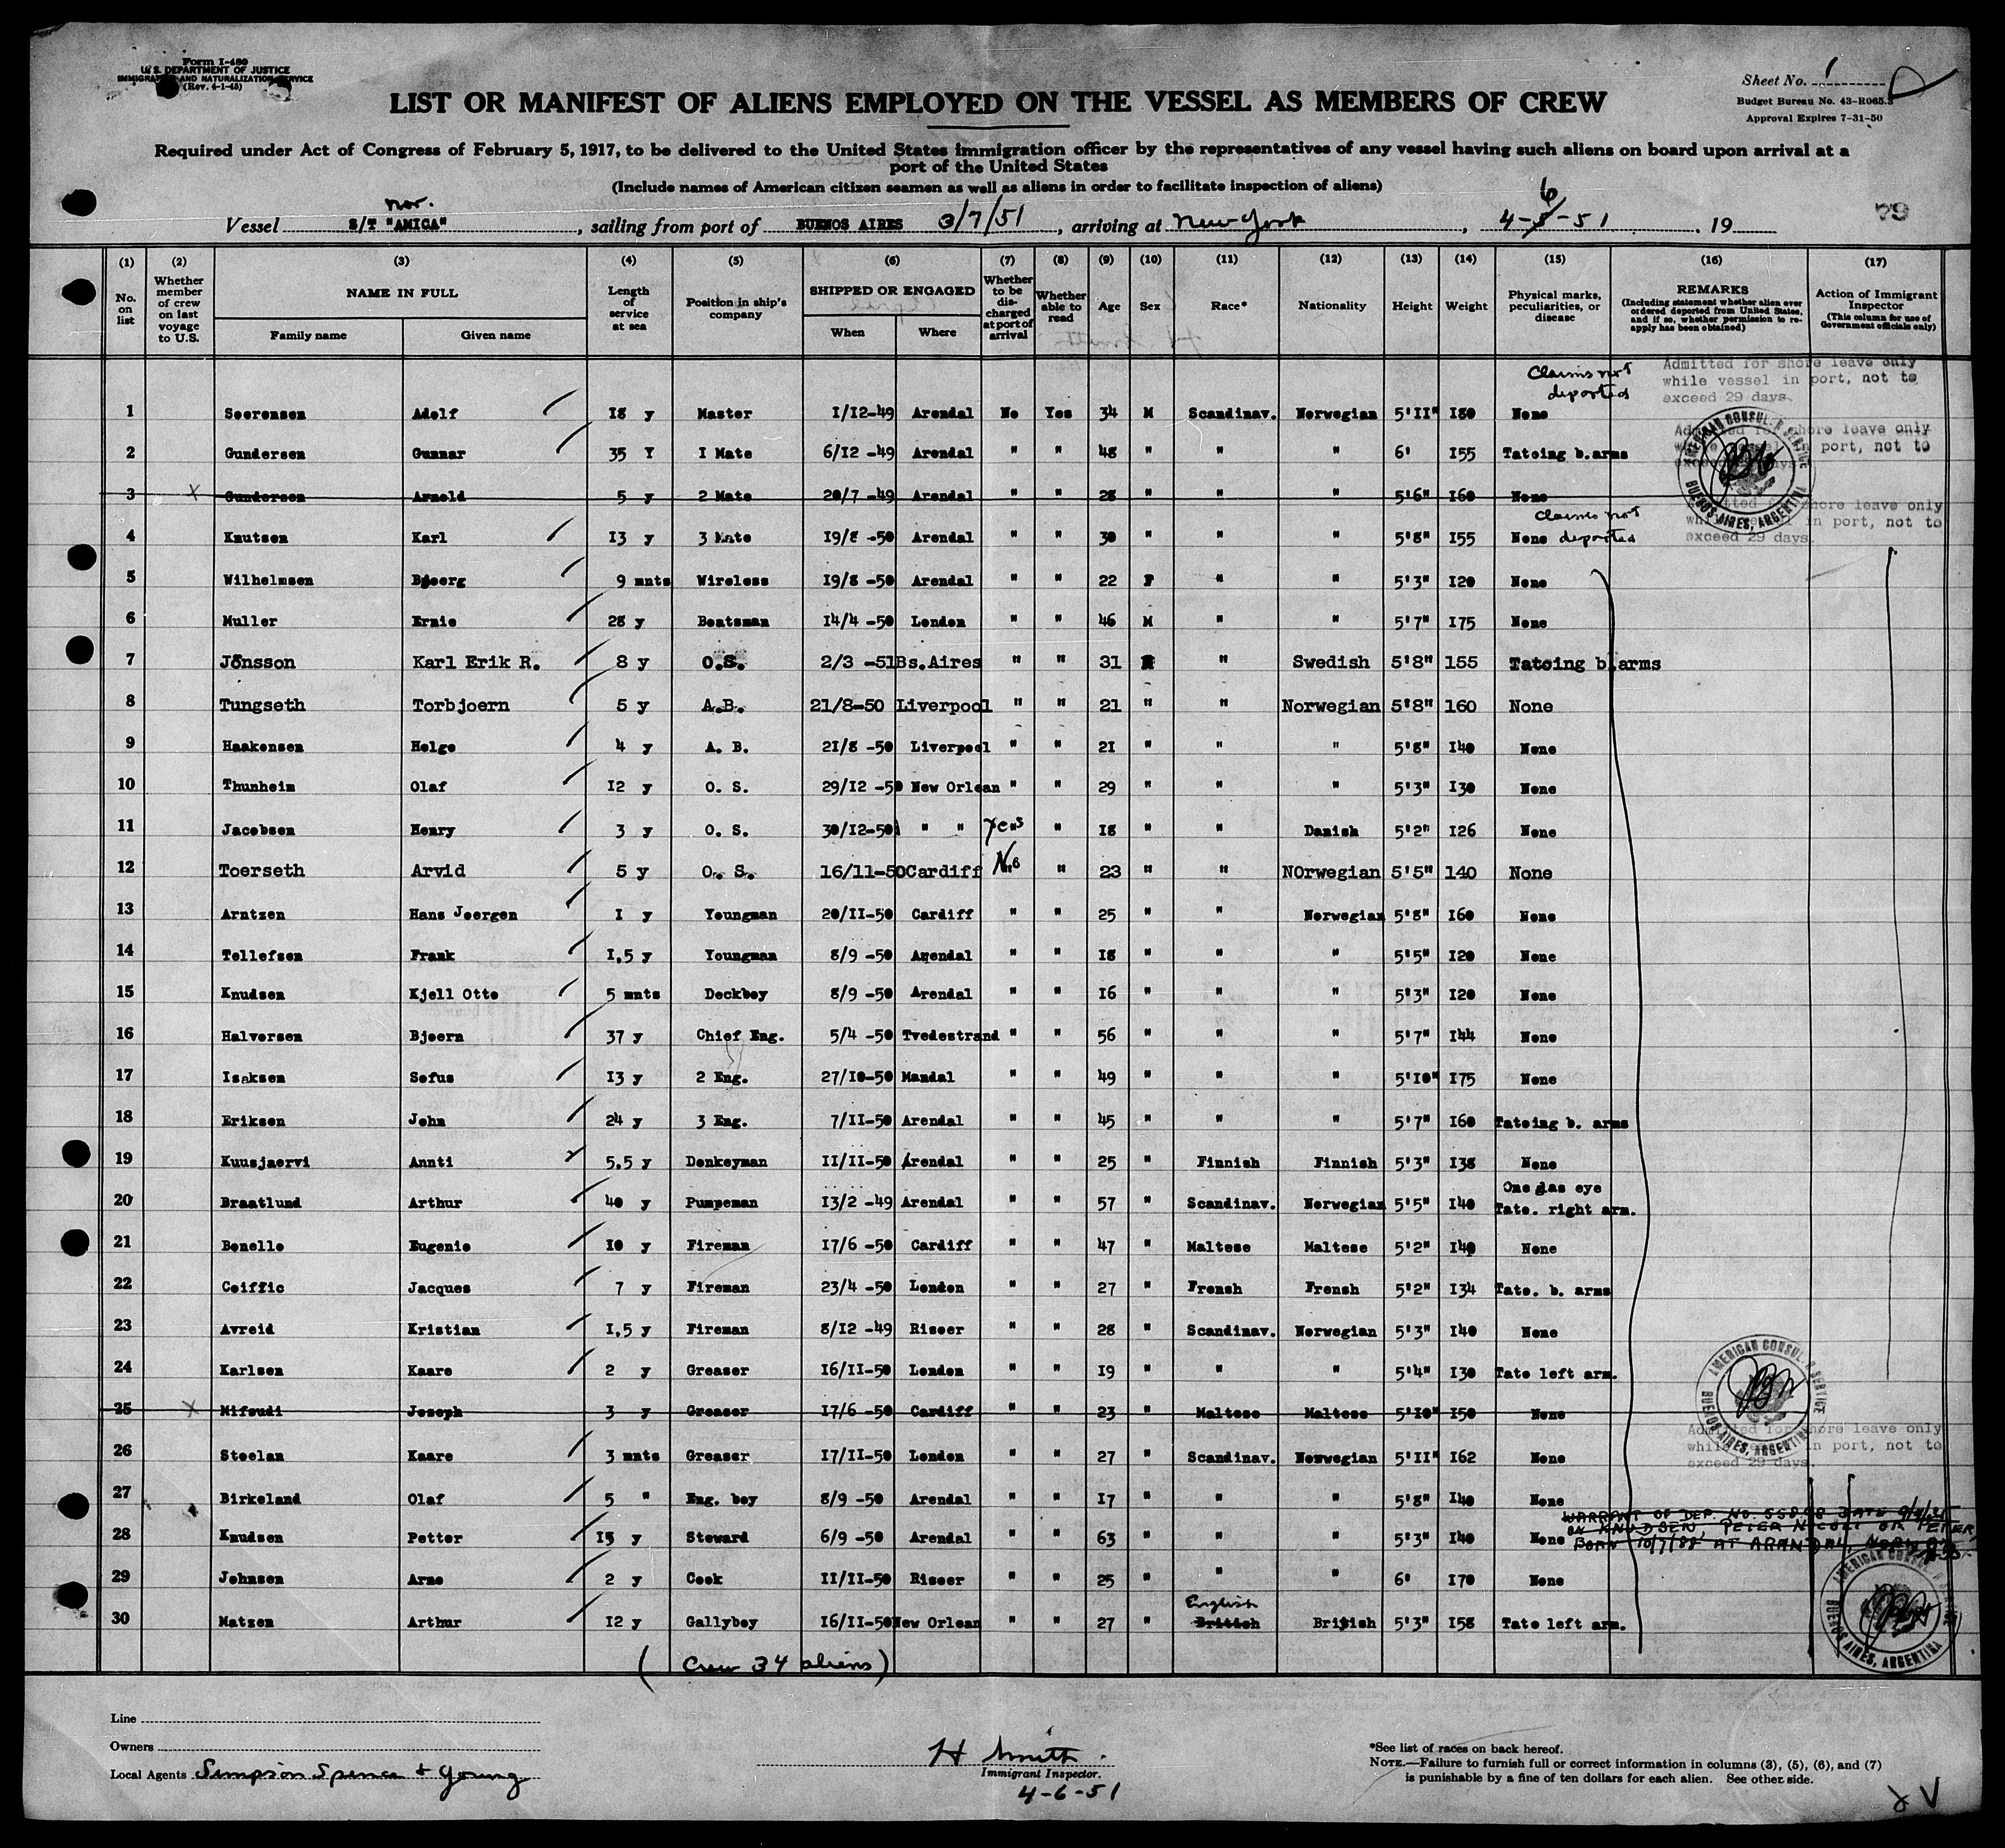 Form I-480
U. S. DEPARTMENT OF JUSTICE
IMMIGRATION AND NATURALIZATION SERVICE
(Rev. 4-1-48)
Sheet No. 1
Budget Bureau No. 43-R065.3
Approval Expires 7-31-50
LIST OR MANIFEST OF ALIENS EMPLOYED ON THE VESSEL AS MEMBERS OF CREW
Required under Act of Congress of February 5, 1917, to be delivered to the United States immigration officer by the representatives of any vessel having such aliens on board upon arrival at a
port of the United States
(Include names of American citizen seamen as well as aliens in order to facilitate inspection of aliens)
nor. 6
Vessel S/T "AMICA", sailing from port of BUENOS AIRES 3/7/51, arriving at New York, 4-5-51, 19 79
(1) (2) (3) (4) (5) (6) (7) (8) (9) (10) (11) (12) (13) (14) (15) (16) (17)
No. on list
Whether member of crew on last voyage to U.S.
NAME IN FULL
Family name Given name
Length of service at sea
Position in ship's company
SHIPPED OR ENGAGED
When Where
Whether to be discharged at port of arrival
Whether able to read
Age Sex Race* Nationality Height Weight
Physical marks, peculiarities, or disease
REMARKS
(Including statement whether alien ever ordered deported from United States, and if so, whether permission to reapply has been obtained)
Action of Immigrant Inspector
(This column for use of Government officials only)
Claims not deported
Admitted for shore leave only
while vessel in port, not to
exceed 29 days.
1 Soerensen Adolf 18 y Master 1/12-49 Arendal No Yes 34 M Scandinav. Norwegian 5'11" 180 None
2 Gundersen Gunnar 35 Y I Mate 6/12 -49 Arendal " " 48 " " " 6' 155 Tatoing b.arms
3 X Gundersen Arnold 5 y 2 Mate 20/7 -49 Arendal " " 28 " " " 5'6" 160 None
Claims not
4 Knutsen Karl 13 y 3 Mate 19/8 -50 Arendal " " 30 " " " 5'8" 155 None deported
5 Wilhelmsen Bjoerg 9 mnts Wireless 19/8 -50 Arendal " " 22 F " " 5'3" 120 None
6 Muller Ernie 28 y Boatsman 14/4 -50 London " " 46 M " " 5'7" 175 None
7 Jönsson Karl Erik R. 8 y O.S. 2/3 -51 Bs.Aires " " 31 " Swedish 5'8" 155 Tatoing b.arms
8 Tungseth Torbjoern 5 y A.B. 21/8-50 Liverpool " " 21 " " Norwegian 5'8" 160 None
9 Haakonsen Helge 4 y A. B. 21/8 -50 Liverpool " " 21 " " " 5'8" 140 None
10 Thunheim Olaf 12 y O. S. 29/12 -50 New Orlean " " 29 " " " 5'3" 130 None
11 Jacobsen Henry 3 y O. S. 30/12-50 " " Yes " 18 " " Danish 5'2" 126 None
12 Toerseth Arvid 5 y O. S. 16/11-50 Cardiff No " 23 " " NOrwegian 5'5" 140 None
13 Arntzen Hans Joergen I y Youngman 20/11-50 Cardiff " " 25 " " Norwegian 5'8" 160 None
14 Tellefsen Frank 1,5 y Youngman 8/9 -50 Arendal " " 18 " " " 5'5" 120 None
15 Knudsen Kjell Otto 5 mnts Deckboy 8/9 -50 Arendal " " 16 " " " 5'3" 120 None
16 Halvorsen Bjoern 37 y Chief Eng. 5/4 -50 Tvedestrand " " 56 " " " 5'7" 144 None
17 Isaksen Sofus 13 y 2 Eng. 27/10-50 Mandal " " 49 " " " 5'10" 175 None
18 Eriksen John 24 y 3 Eng. 7/11-50 Arendal " " 45 " " " 5'7" 160 Tatoing b. arms
19 Kuusjaervi Annti 5,5 y Donkeyman 11/11-50 Arendal " " 25 " Finnish Finnish 5'3" 138 None
One glas eye
20 Braatlund Arthur 40 y Pumpeman 13/2 -49 Arendal " " 57 " Scandinav. Norwegian 5'5" 140 Tato. right arm.
21 Bonello Eugenio 10 y Fireman 17/6 -50 Cardiff " " 47 " Maltese Maltese 5'2" 140 None
22 Coiffic Jacques 7 y Fireman 23/4 -50 London " " 27 " Fronsh Frensh 5'2" 134 Tato. b. arms
23 Avreid Kristian 1,5 y Fireman 8/12 -49 Risoer " " 28 " Scandinav. Norwegian 5'3" 140 None
24 Karlsen Kaare 2 y Greaser 16/11-50 London " " 19 " " " 5'4" 130 Tato left arm.
25 X Mifsudi Joseph 3 y Greaser 17/6 -50 Cardiff " " 23 " Maltese Maltese 5'10" 150 None
26 Steelan Kaare 3 mnts Greaser 17/11-50 London " " 27 " Scandinav. Norwegian 5'11" 162 None
27 Birkeland Olaf 5 " Eng. boy 8/9 -50 Arendal " " 17 " " " 5'8" 140 None
28 Knudsen Petter 15 y Steward 6/9 -50 Arendal " " 63 " " " 5'3" 140 None
29 Johnsen Arne 2 y Cook 11/11-50 Risoer " " 25 " " " 6' 170 None
English
30 Matzen Arthur 12 y Gallyboy 16/11-50 New Orlean " " 27 " British British 5'3" 158 Tato left arm.
Admitted for shore leave only
while vessel in port, not to
Admitted for shore leave only
while vessel in port, not to
exceed 29 days.
AMERICAN CONSULAR SERVICE
BUENOS AIRES, ARGENTINA
AMERICAN CONSULAR SERVICE
BUENOS AIRES, ARGENTINA
Admitted for shore leave only
while vessel in port, not to
exceed 29 days.
WARRANT OF DEP. NO.
KNUDSEN, PETER OR PETER,
BORN 10/7/88 AT ARANDAL, NORWAY
AMERICAN CONSULAR SERVICE
BUENOS AIRES, ARGENTINA
( Crew 34 aliens )
Line
Owners
Local Agents Simpson Spence & Young
H Smith.
Immigrant Inspector.
4-6-51
*See list of races on back hereof.
NOTE.—Failure to furnish full or correct information in columns (3), (5), (6), and (7)
is punishable by a fine of ten dollars for each alien. See other side.